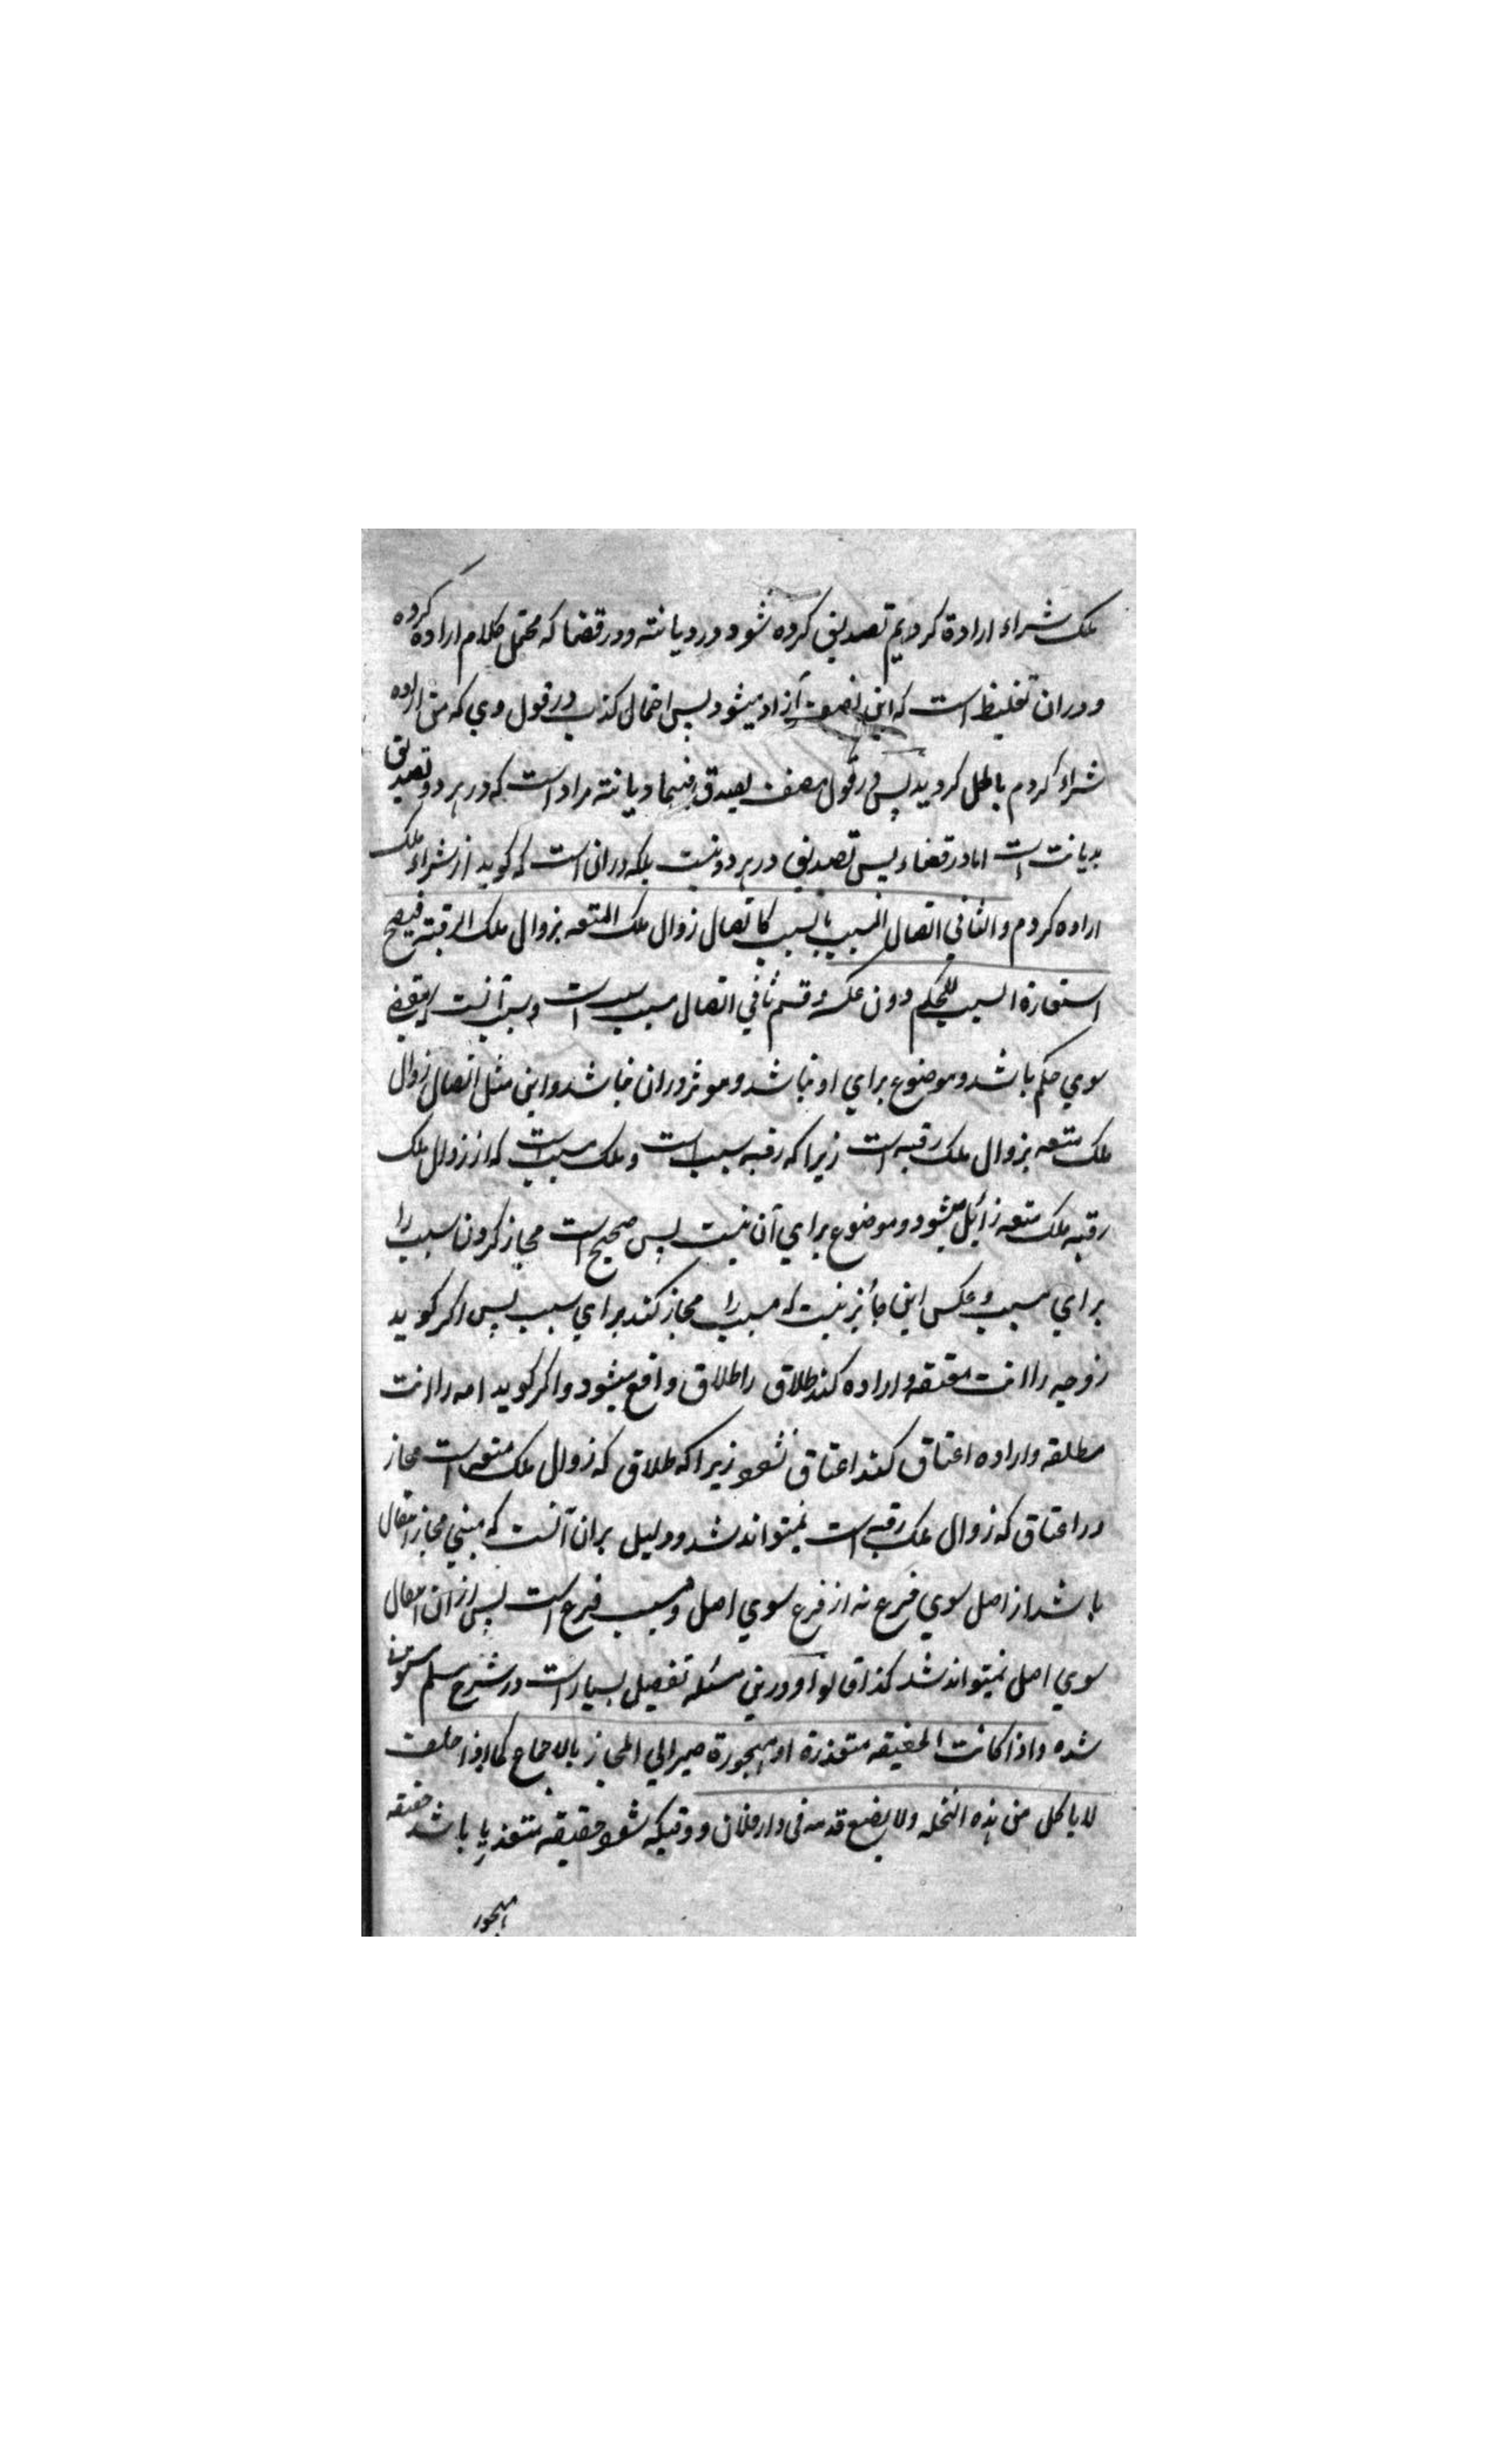 ملک شراء ارادة کردیم تصدیق کرده شود در دیانته و در قضا که محتمل کلام اراده کرده
و دران تغلیظ است که این نصف آزاد میشود پس احتمال کذب در قول وی که من اراده
شراء کردم باطل کردید پس در قول مصنف یصدق فیهما دیانته مراد است که در هر دو تصدیق
بدیانت است اما در قضاء پس تصدیق در هر دو نیست بلکه دران است که کوید از شراء ملک
اراده کردم والثانی اتصال المسبب بالسبب کاتصال زوال ملک المتعه بزوال ملک الرقبته فیصح
استعارة السبب للحکم دون عکسه و قسم ثانی اتصال مسبب بسبب است و سبب آنست که مفضی
سوی حکم باشد و موضوع برای او نباشد و موثر دران نباشد و این مثل اتصال زوال
ملک متعه بزوال ملک رقبه است زیرا که رقبه سبب است و ملک مسبب است که از زوال ملک
رقبه ملک متعه زائل میشود و موضوع برای آن نیست پس صحیح است مجاز کردن سبب را
برای مسبب و عکس این جائز نیست که مسبب را مجاز کند برای سبب پس اکر کوید
زوجه را انت معتقه و اراده کند طلاق را طلاق واقع میشود و اکر کوید امه را انت
مطلقه و اراده اعتاق کند اعتاق نشود زیرا که طلاق که زوال ملک متعه است مجاز
در اعتاق که زوال ملک رقبه است نمیتواند شد و دلیل بران آنست که مبنی مجاز انتقال
باشد از اصل سوی فرع نه از فرع سوی اصل و مسبب فرع است پس ازان انتقال
سوی اصل نمیتواند شد کذا قالوا و درین مسئله تفصیل بسیار است در شرح سلم
شده واذا کانت الحقیقه متعذرة او مهجورة صیر الی المجاز بالاجماع کما اذا حلف
لا یاکل من هذه النخله ولا یضع قدمه فی دار فلان و وقتیکه شود حقیقه متعذر یا باشد حقیقه
مهجور